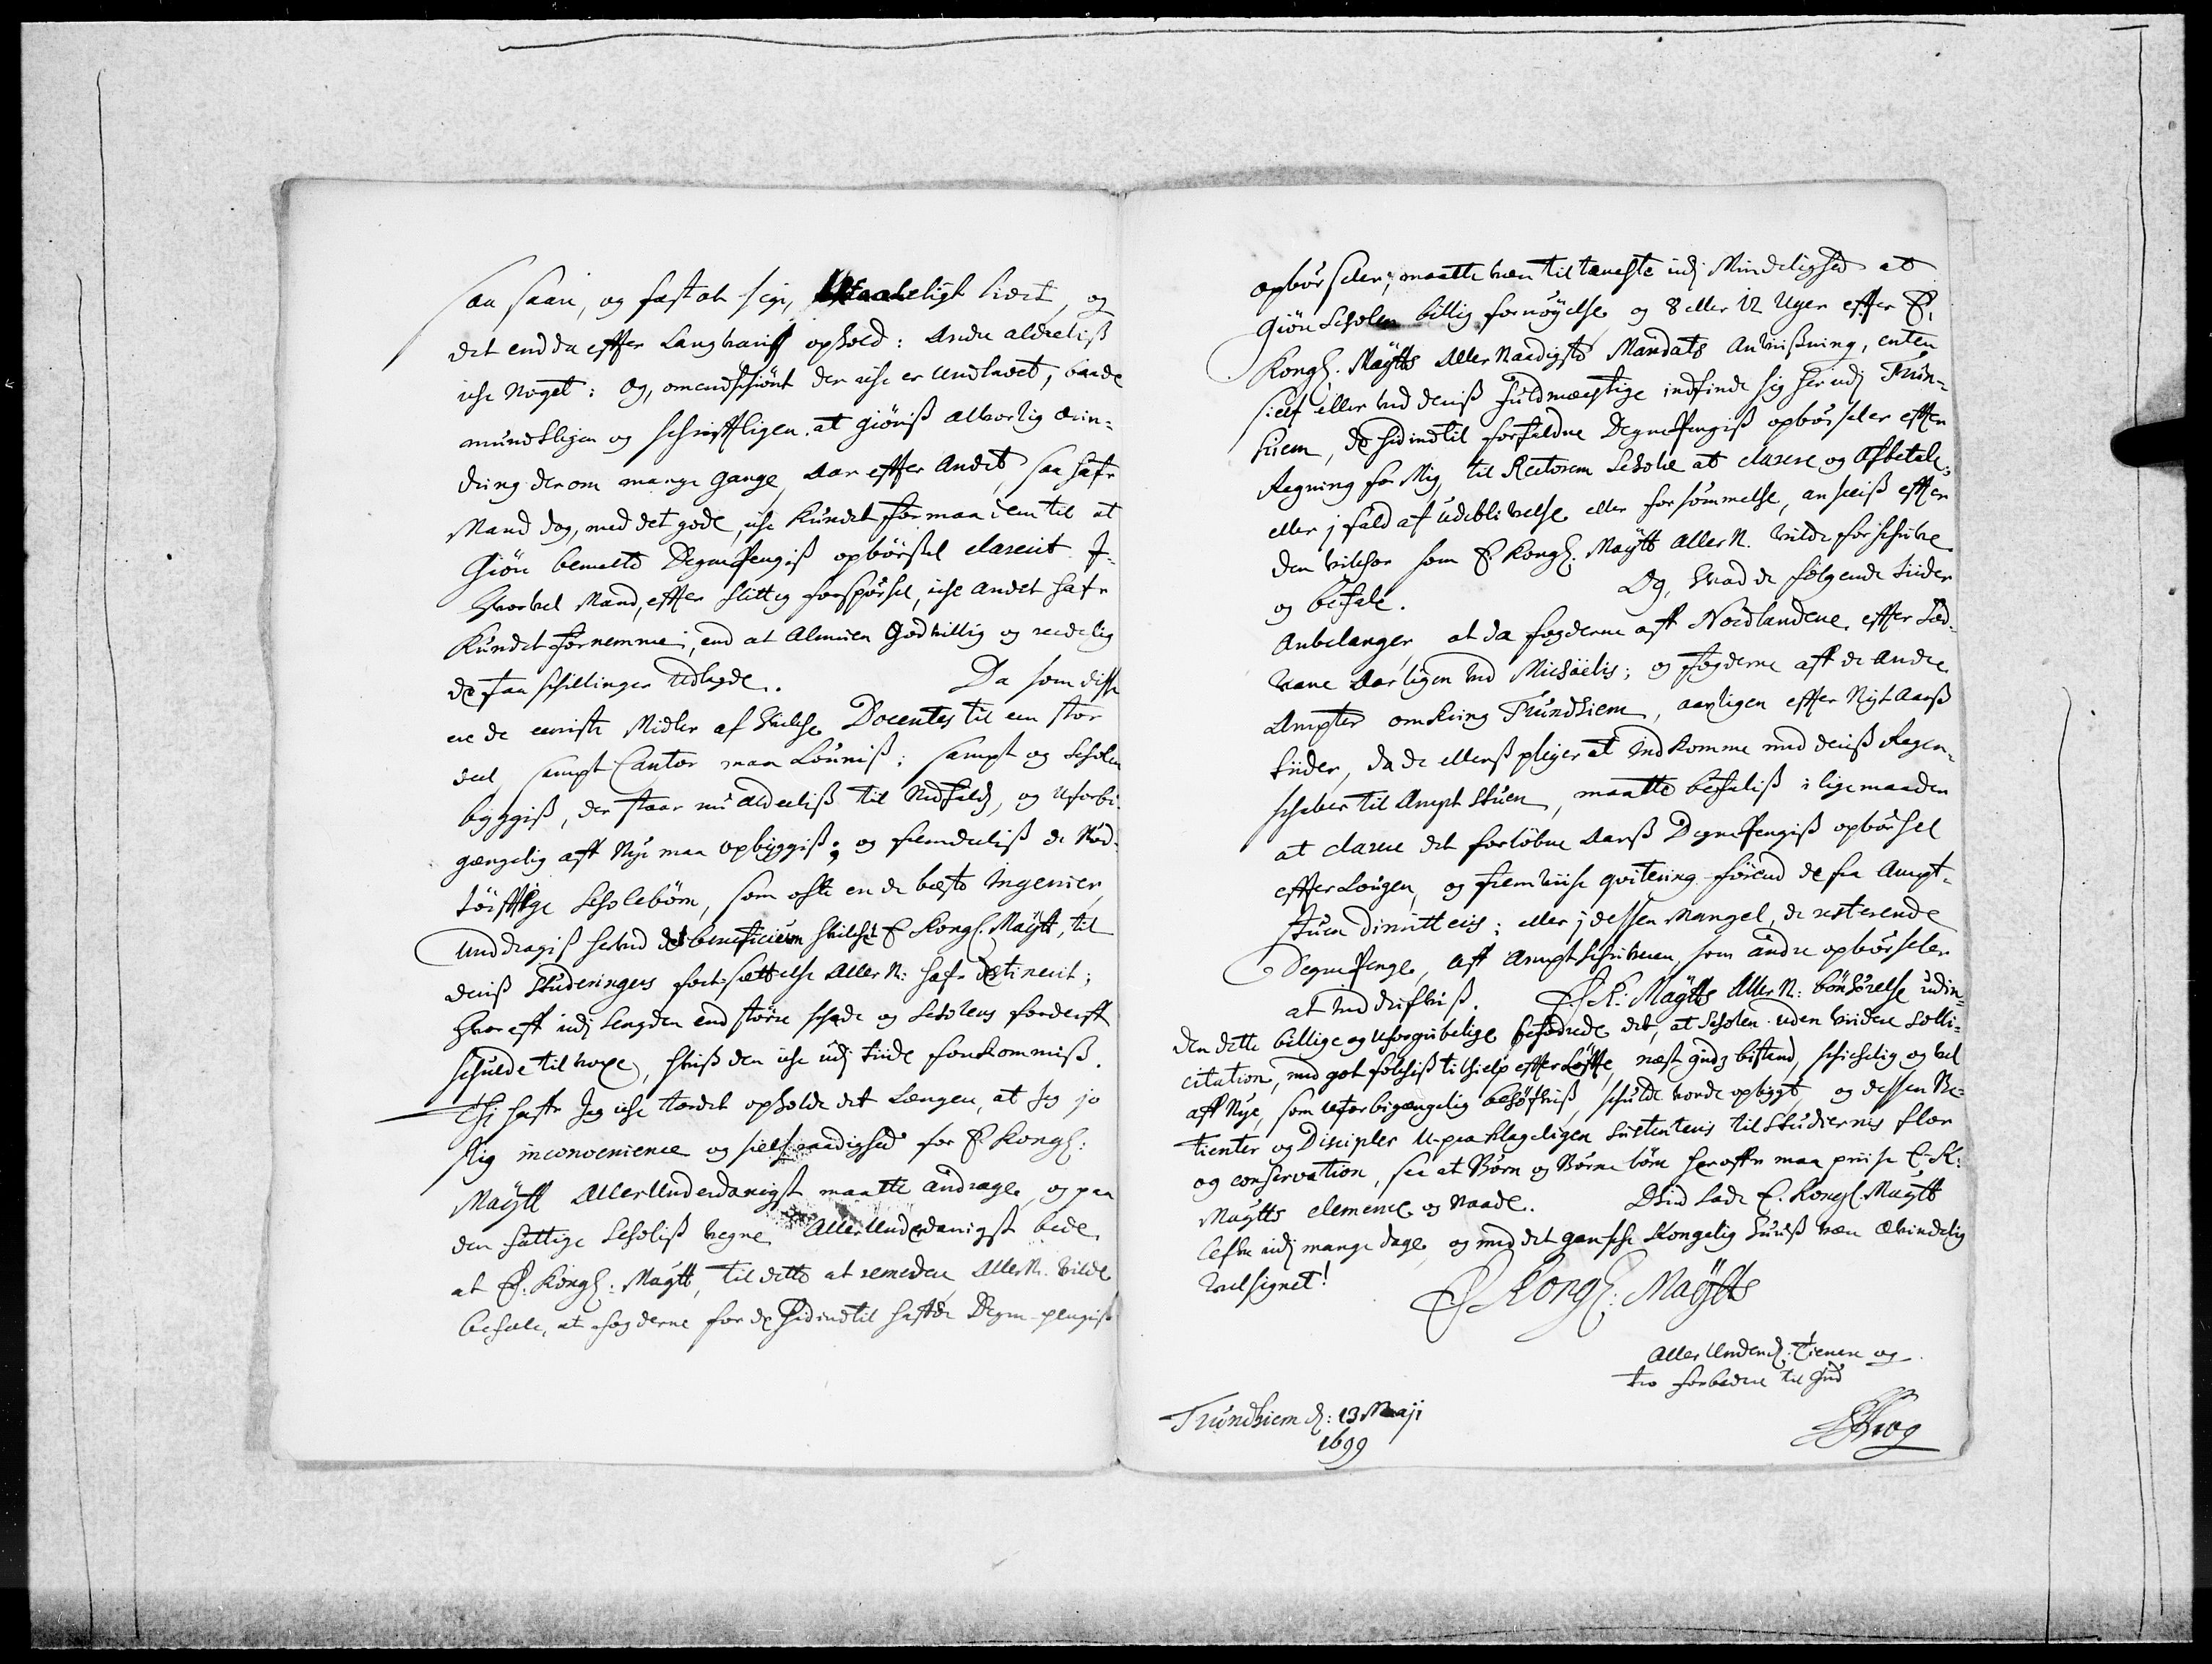 saa saare, og fast at sige, Utaaleligt lidet, og
det endda effter Langvarig ophold: Andre aldeeliß
iche Noget: Og, omendskiønt der iche er Undladet, baade
mundtligen og schrifftligen at giøriß alvorlig erin-
dring derom mange gange, Aar effter Andet, saa hafr
Mand dog, med det gode, iche kundet formaa dem til at
giøre bemelte Degne Pengiß opbørsel clarerit. I-
hvorvel Mand, effter flittig forspørsel, iche andet hafr
kundet fornemme, end at Almuen Godvillig og reedelig
de faa schillinger Udlegde. Da som disse
ere de eeniste Midler af hvilche Docentes til een stor
deel sampt Cantor maa Lønniß; sampt og Scholen
byggiß, der staar nu aldeeliß til Nedfald, og Uforbi-
gængelig aff Nye maa opbyggiß; og fremdeeliß de Nød-
tørfftige Scholebørn, som offte ere de beste Ingenier,
Unddragiß herved det beneficium hvilchet E. Kongl. Maytt, til
deriß Studeringers fortsættelse Aller N: hafr destinerit;
Hvoraff udj Lengden end større schade og Scholens forderff
schulde tilvoxe, hviß den iche udj tiide forekommiß.
Thj haffr Jeg iche tordet opholde det Længere, at Jeg jo
slig inconvenience og sielfraadighed for E. Kongl:
Maytt AllerUnderdanigst maatte andrage, og paa
den fattige Scholiß vegne AllerUnderdanigst bede,
at E. Kongl: Maytt, til dette at remedere, AllerN. vilde
befale, at fogderne for de hidindtil hafde Degne-pengiß
opbørseler, maatte være tiltænchte udj Mindelighed at
giøre Scholen billig fornøyelse og 8 eller 12 Uger effter E.
Kongl. Maytts AllerNaadigste Mandats Anviißning, enten
sielf eller ved deriß fuldmægtige indfinde sig her udj Trun-
hiem, de hidindtil forfaldne Degne Pengiß opbørseler effter
Regning for Mig, til Rectorem Scholæ at clarere og Afbetale;
eller j fald af udeblivelse eller forsømmelse, anseeiß effter
den vilchor som E. Kongl: Maytt AllerN. vilde forschrive
og befale. Og, hvad de følgende tiider
Anbelanger, at da fogderne aff Nordlandene, effter Sæd-
vane Aarligen ved Michaelis; og fogderne aff de andre
Ampter omkring Trundhiem, aarligen effter Nyt Aarß
tiider, da de ellerß pleyer at indkomme med deriß Regen-
schaber til Ampt Stuen, maatte befaliß i lige maader
at clarere det forløbne Aarß Degne Pengiß opbørsel
effter Lougen, og fremviise qvitering førend de fra Ampt-
stuen dimitteris; eller j dessen Mangel, de resterende
Degne Penge, aff Amptschriveren, som andre opbørseler
at inddrifviß. E. K: Maytts AllerN: bønhørelse udin-
den dette billige og Uforgribelige befodrede det, at Scholen uden videre solli-
citation, med got følchiß tilhielp effter Løffte, næst gudz bistand, schichelig og vel
aff Nye, som Uforbigængelig behøfviß, schulde vorde opbygt, og dessen Be-
tienter og Discipler U-paaklageligen sustenteris til Studiernis flor
og conservation, saa at Børn og Børne børn heroffr maa priise E. K:
Maytts clemence og Naade. Gud lade E. Kongl. Maytt
lefve udj mange dage, og med det gansche Kongelig huuß være Ævindelig
Velsignet!
E. Kongl: Maytts
Aller Underd. tienere og
tro forbedere til Gud
Trundhiem d: 13 Maji
1699
Krog